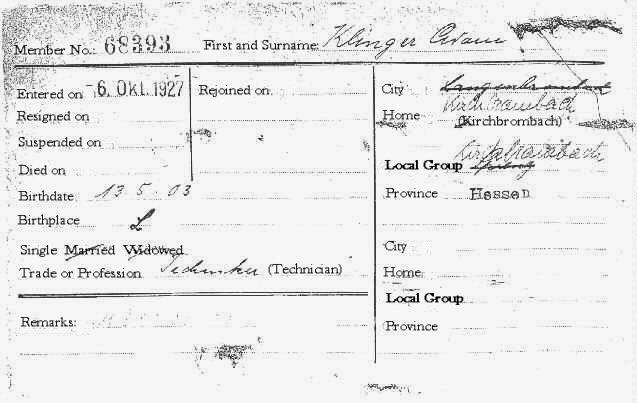 Member No.: 68393 First and Surname: Klinger Adam
Entered on -6. Okt. 1927 Rejoined on
Resigned on
Suspended on
Died on
Birthdate 13 5 03
Birthplace L
Single Married Widowed
Trade or Profession Techniker (Technician)
Remarks:
City Langenbrombach
Home Kirchbrombach
(Kirchbrombach)
Local Group Kirchbrombach
Province Hessen
City
Home
Local Group
Province